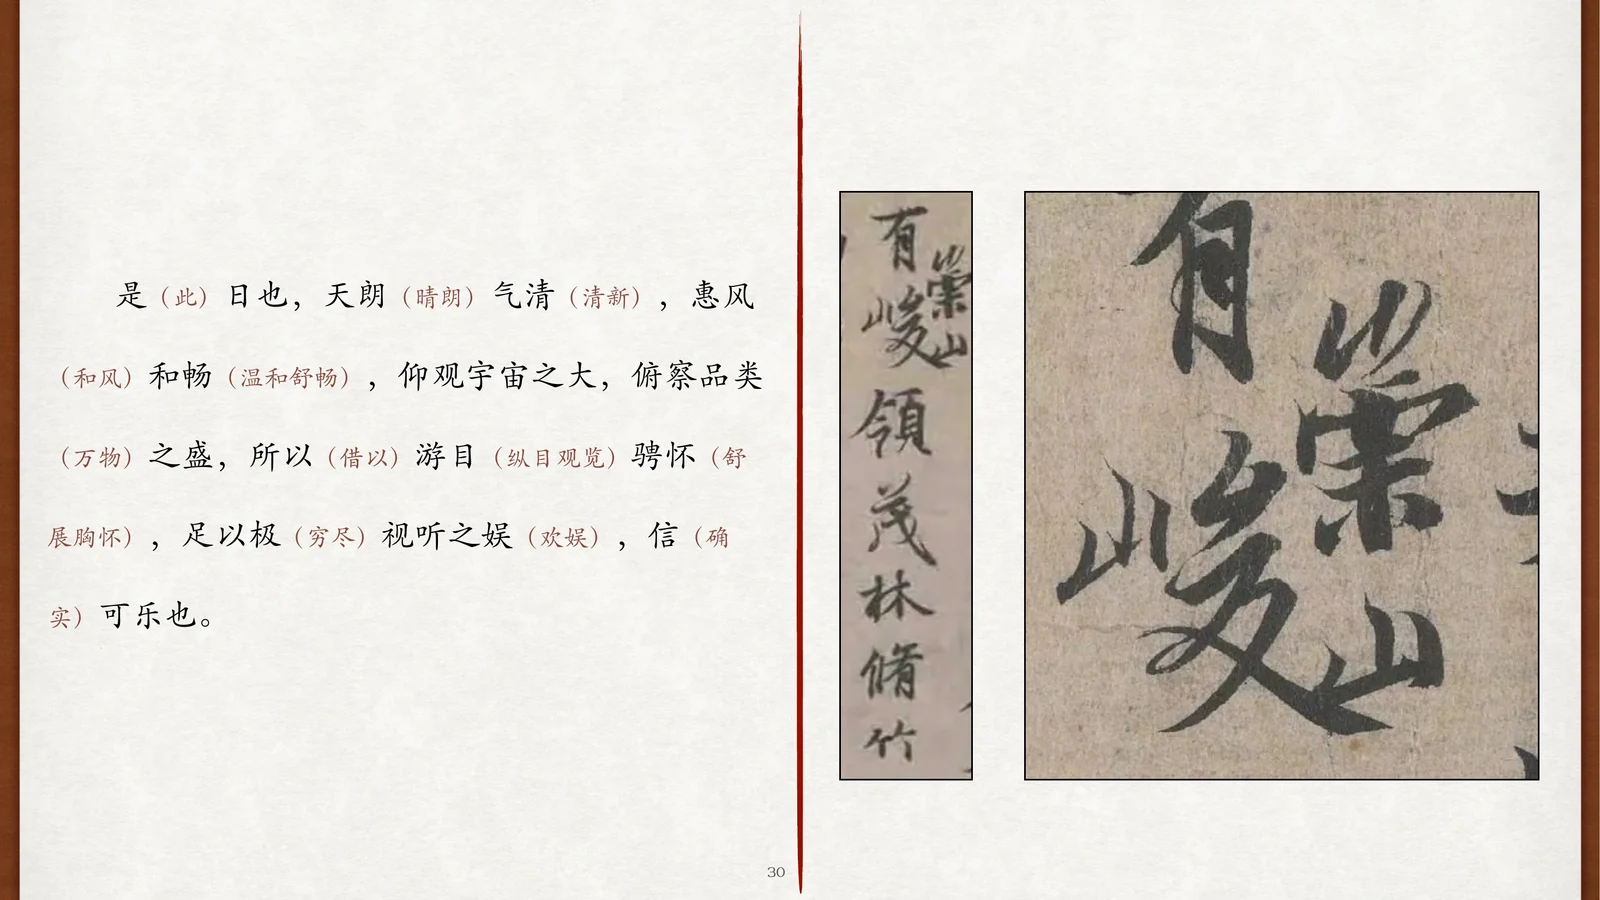 是（此）日也，天朗（晴朗）气清（清新），惠风
（和风）和畅（温和舒畅），仰观宇宙之大，俯察品类
（万物）之盛，所以（借以）游目（纵目观览）骋怀（舒
展胸怀），足以极（穷尽）视听之娱（欢娱），信（确
实）可乐也。
30
有峻領茂林脩竹
崇山
有峻
崇山